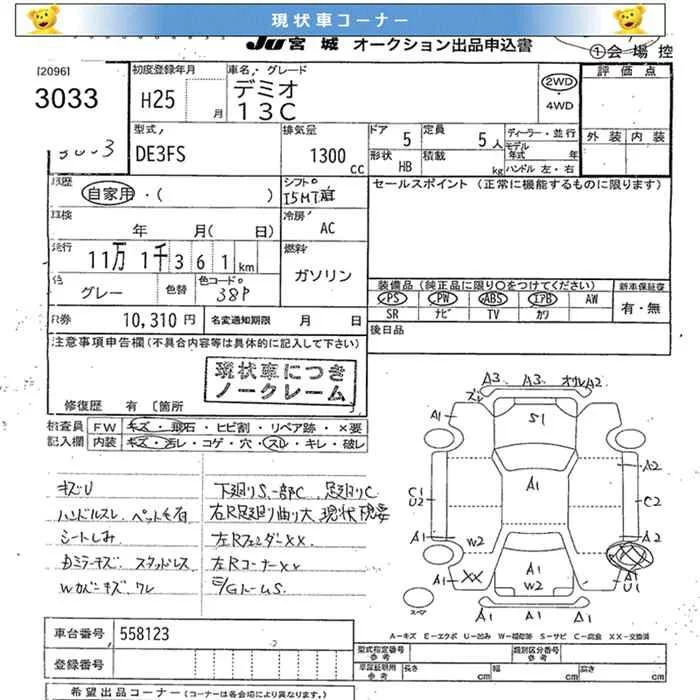 現状車コーナー
JU 宮城 オークション出品申込書
①会場控
[2096]
3033
3033
初度登録年月
H25
月
車名, グレード
デミオ
13C
2WD
・
4WD
評価点
外装 内装
型式,
DE3FS
排気量
1300 cc
ドア 5
定員 5 人
形状 HB
積載 kg
ディーラー・並行
モデル年式 年
ハンドル 左・右
履歴
自家用・( )
シフト
I5MT
セールスポイント (正常に機能するものに限ります)
車検
年 月( 日)
冷房
AC
走行
11万 1千 361km
燃料
ガソリン
色
グレー
色替
色コード
38P
装備品 (純正品に限り○をつけてください)
新車保証書
PS PW ABS エアB AW
SR ナビ TV カワ
有・無
R券
10,310円
名変通知期限 月 日
後日品
注意事項申告欄 (不具合内容等は具体的に記入して下さい)
現状車につき
ノークレーム
修復歴 有 [箇所
検査員 記入欄
FW キズ・飛石・ヒビ割・リペア跡・×要
内装 キズ・汚レ・コゲ・穴・スレ・キレ・破レ
キズU
ハンドルスレ、ペット毛有
シートしみ
カミラーキズ スタッドレス
Wカバーキズ、ワレ
下廻りS、一部C、足廻りC
右R足廻り曲り大、現状現要
左RフェンダーXX
左RコーナーXX
E/GルームS
A3 A3 オリレA2
ズレ
A1
S1
A2
A1
C1
U2
C2
A1
W2
A2
A1
XX
A1
W2
A1
U1
A1 A1
スペア
A-キズ E-エクボ U-凹み W-補修跡 S-サビ C-腐食 XX-交換済
車台番号 558123
登録番号
型式指定番号 参考
類別区分番号 参考
車庫証明用 参考
長さ cm
幅 cm
高さ cm
希望出品コーナー (コーナーは各会場により異なります。)